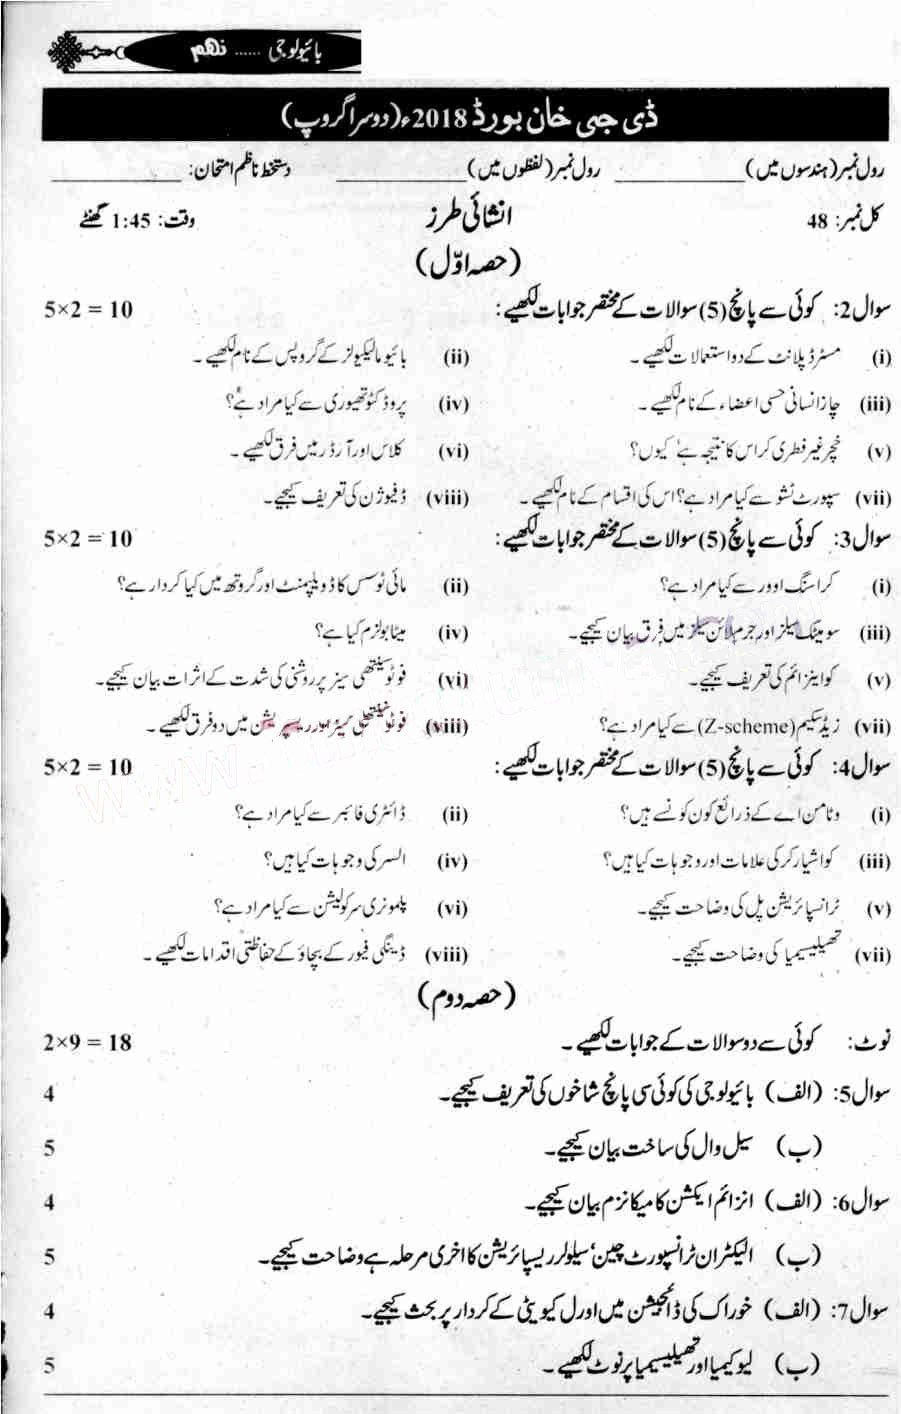 بائیولوجی ...... نهم
ڈی جی خان بورڈ 2018ء (دوسرا گروپ)
رول نمبر (ہندسوں میں) ____________ رول نمبر (لفظوں میں) ____________ دستخط ناظم امتحان: ____________
کل نمبر: 48 انشائی طرز وقت: 1:45 گھنٹے
(حصہ اوّل)
سوال 2: کوئی سے پانچ (5) سوالات کے مختصر جوابات لکھیے : 5×2 = 10
(i) مسٹرڈ پلانٹ کے دو استعمالات لکھیے۔ (ii) بائیو مالیکیولز کے گروپس کے نام لکھیے۔
(iii) چار انسانی حسی اعضاء کے نام لکھیے۔ (iv) پروڈکٹو تھیوری سے کیا مراد ہے؟
(v) خچر غیر فطری کراس کا نتیجہ ہے، کیوں؟ (vi) کلاس اور آرڈر میں فرق لکھیے۔
(vii) سپورٹ ٹشو سے کیا مراد ہے؟ اس کی اقسام کے نام لکھیے۔ (viii) ڈفیوژن کی تعریف کیجیے۔
سوال 3: کوئی سے پانچ (5) سوالات کے مختصر جوابات لکھیے : 5×2 = 10
(i) کراسنگ اوور سے کیا مراد ہے؟ (ii) مائی ٹوسس کا ڈویلپمنٹ اور گروتھ میں کیا کردار ہے؟
(iii) سومیٹک سیلز اور جرم لائن سیلز میں فرق بیان کیجیے۔ (iv) میٹابولزم کیا ہے؟
(v) کو اینزائم کی تعریف کیجیے۔ (vi) فوٹو سینتھی سیز پر روشنی کی شدت کے اثرات بیان کیجیے۔
(vii) زیڈ سکیم (Z-scheme) سے کیا مراد ہے؟ (viii) فوٹو سینتھی سیز اور ریسپریشن میں دو فرق لکھیے۔
سوال 4: کوئی سے پانچ (5) سوالات کے مختصر جوابات لکھیے : 5×2 = 10
(i) وٹامن اے کے ذرائع کون کونسے ہیں؟ (ii) ڈائٹری فائبر سے کیا مراد ہے؟
(iii) کواشیارکر کی علامات اور وجوہات کیا ہیں؟ (iv) السر کی وجوہات کیا ہیں؟
(v) ٹرانسپائریشن پل کی وضاحت کیجیے۔ (vi) پلمونری سرکولیشن سے کیا مراد ہے؟
(vii) تھیلیسیمیا کی وضاحت کیجیے۔ (viii) ڈینگی فیور کے بچاؤ کے حفاظتی اقدامات لکھیے۔
(حصہ دوم)
نوٹ: کوئی سے دو سوالات کے جوابات لکھیے۔ 2×9 = 18
سوال 5: (الف) بائیولوجی کی کوئی سی پانچ شاخوں کی تعریف کیجیے۔ 4
(ب) سیل وال کی ساخت بیان کیجیے۔ 5
سوال 6: (الف) انزائم ایکشن کا میکانزم بیان کیجیے۔ 4
(ب) الیکٹران ٹرانسپورٹ چین، سیلولر ریسپائریشن کا اخری مرحلہ ہے وضاحت کیجیے۔ 5
سوال 7: (الف) خوراک کی ڈائجیشن میں اورل کیویٹی کے کردار پر بحث کیجیے۔ 4
(ب) لیوکیمیا اور تھیلیسیمیا پر نوٹ لکھیے۔ 5